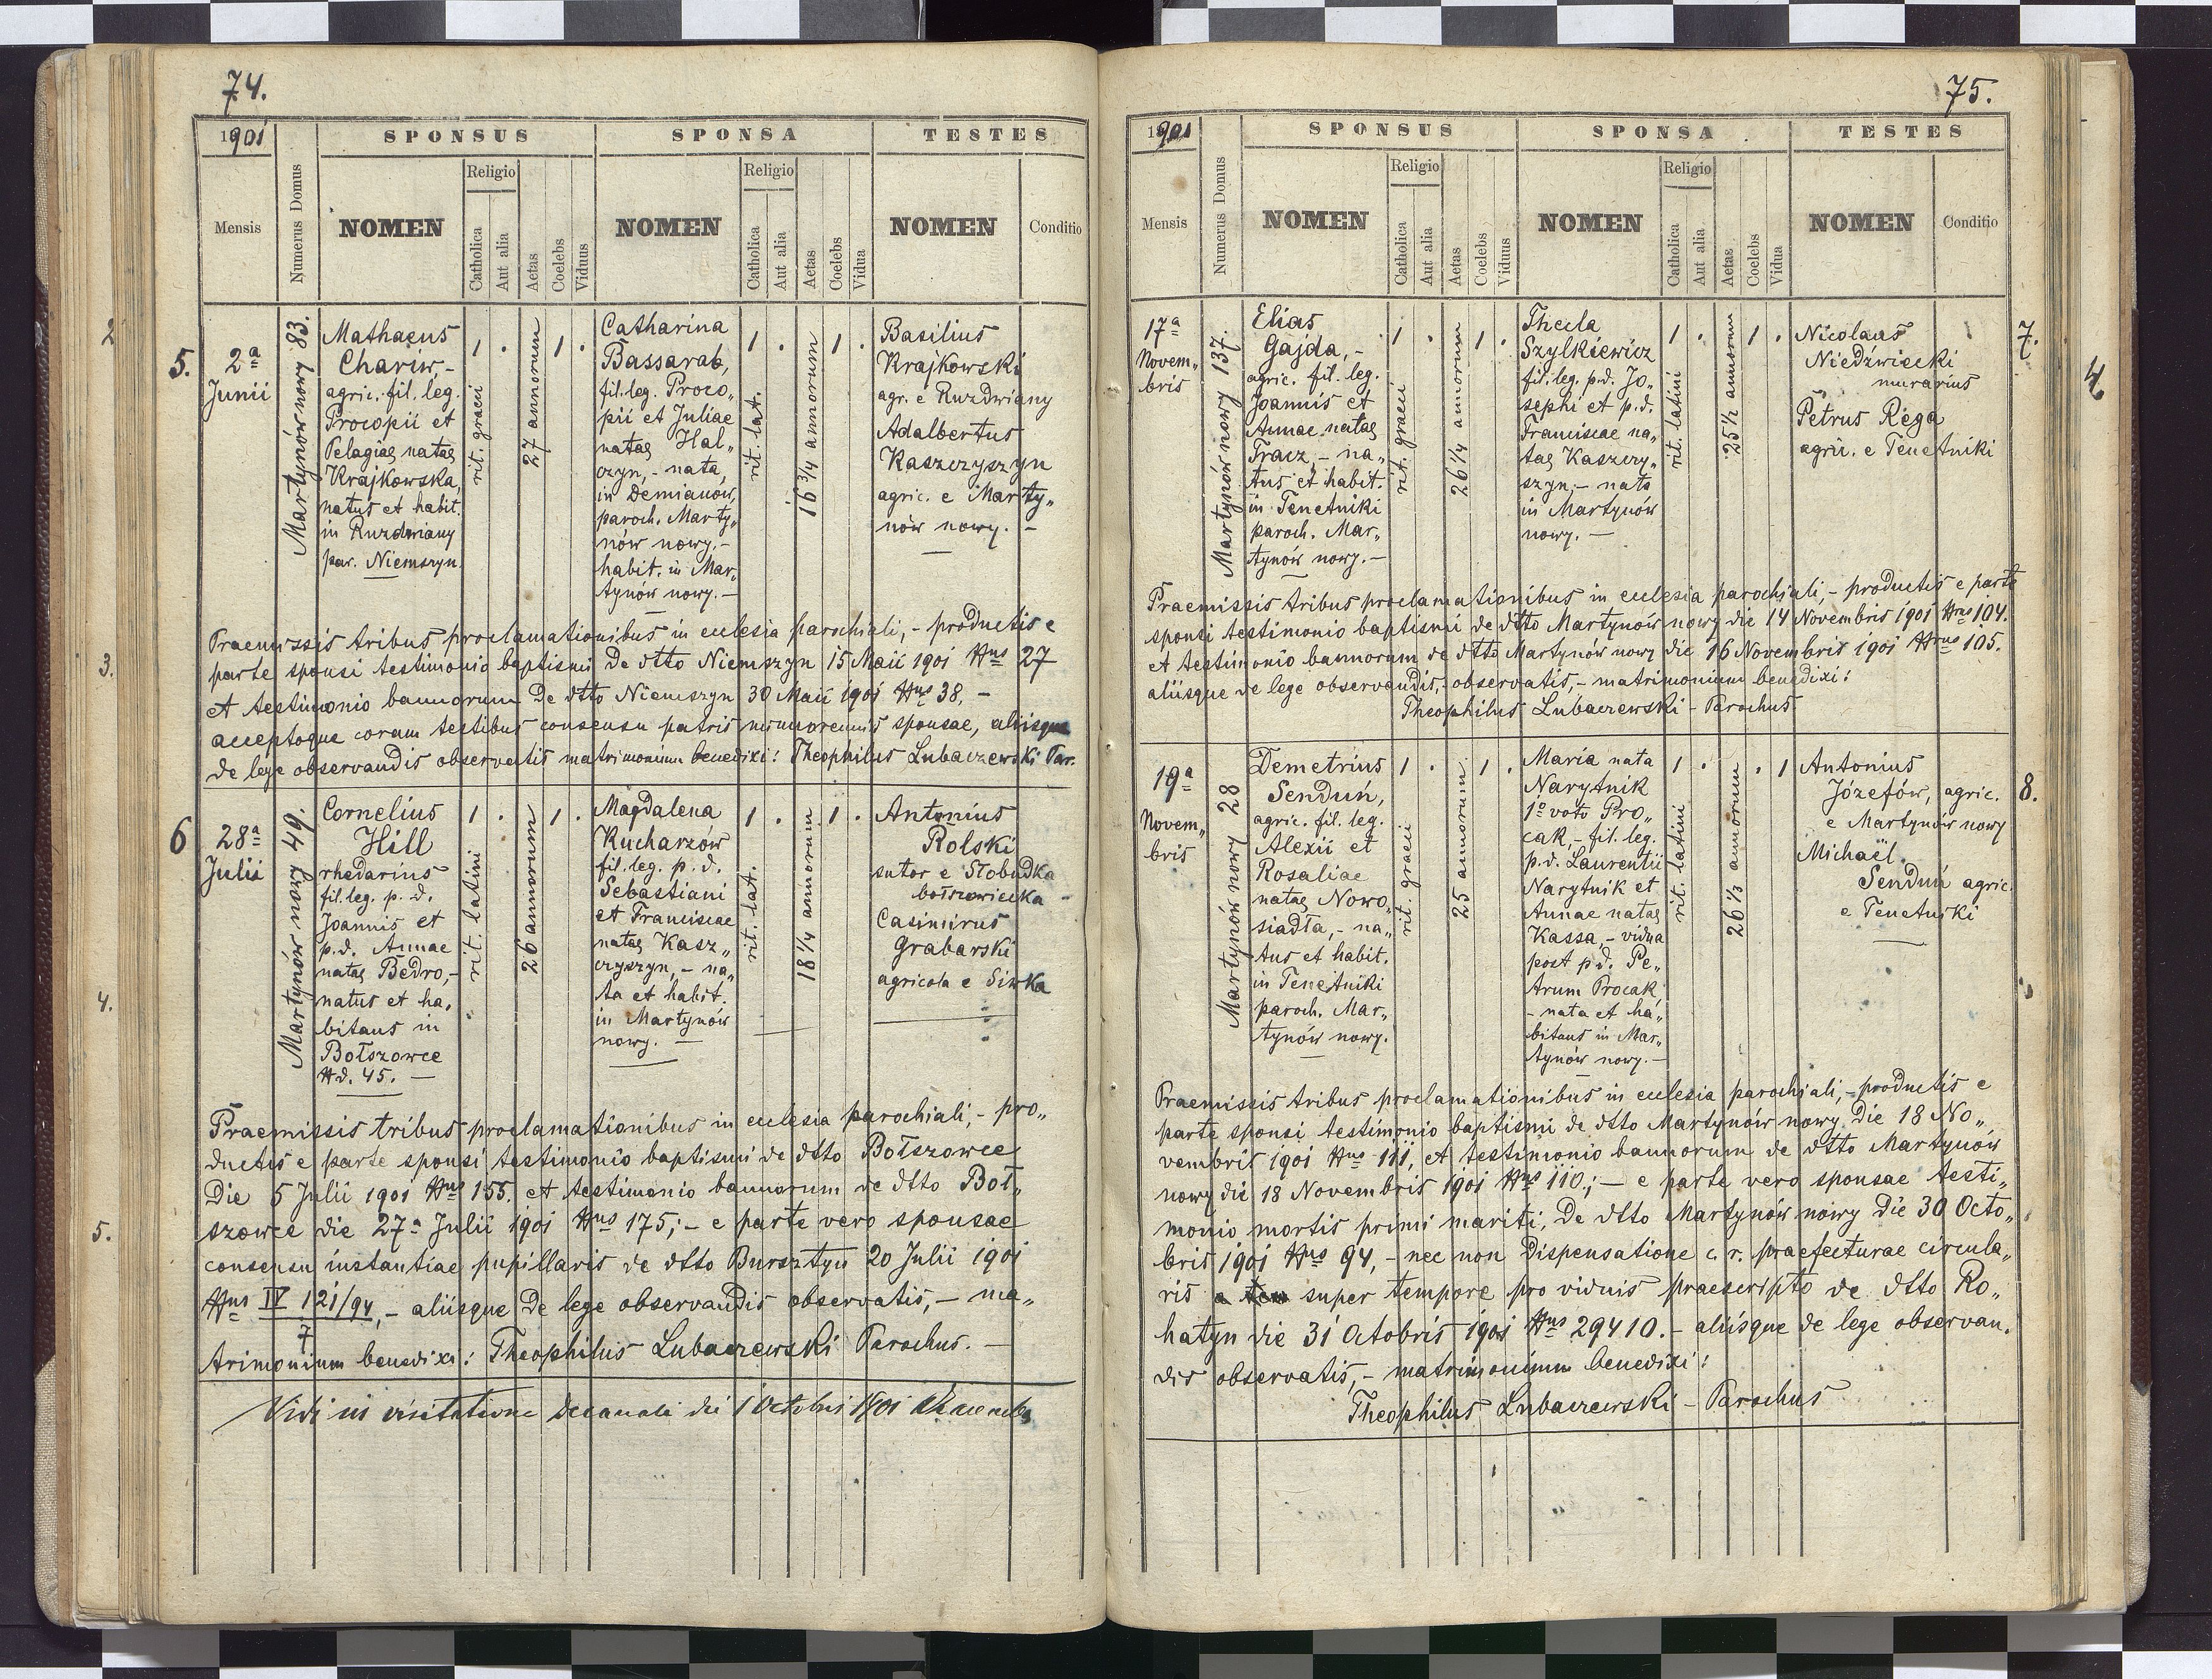 74.
1901
SPONSUS
SPONSA
TESTES
Mensis
Numerus Domus
NOMEN
Religio
Catholica
Aut alia
Aetas
Coelebs
Viduus
NOMEN
Religio
Catholica
Aut alia
Aetas
Coelebs
Vidua
NOMEN
Conditio
5.
2ª
Junii
Martynów nowy 83.
Mathaeus
Chariw,-
agric. fil. leg.
Procopii et
Pelagiae natae
Krajkowska,
natus et habit.
in Ruzdwiany
par. Niemszyn.
1
rit. graeci
.
27 annorum
1
.
Catharina
Bassarab,
fil. leg. Proco„
pii et Juliae
natae Hal„
czyn,- nata,
in Demianów,
paroch. Marty„
nów nowy.-
habit. in Mar„
tynów nowy.-
1
rit. lat.
.
16 3/4 annorum
1
.
Basilius
Krajkowski
agr. e Ruzdwiany
Adalbertus
Kaszczyszyn
agric. e Marty„
nów nowy. -
Praemissis tribus proclamationibus in ecclesia parochiali,- productis e
parte sponsi testimonio baptismi de dtto Niemszyn 15 Maii 1901 Nrus 27
et testimonio bannorum de dtto Niemszyn 30 Maii 1901 Nrus 38,-
acceptoque coram testibus consensu patris minorennis sponsae, aliisque
de lege observandis observatis matrimonium benedixi: Theophilus Lubaczewski Par.
6
28ª
Julii
Martynów nowy 49.
Cornelius
Hill
rhedarius
fil. leg. p. d.
Joannis et
p. d. Annae
natae Bedro,-
natus et ha„
bitans in
Botszowce
Nd. 45. -
1
rit. latini
.
26 annorum
1
.
Magdalena
Kucharzów
fil. leg. p. d.
Sebastiani
et Franciscae
natae Kasz„
czyszyn,- na„
ta et habit.
in Martynów
nowy. -
1
rit. lat.
.
18 1/4 annorum
1
.
Antonius
Rolski
sutor e Słobudka
botszowiecka
Casimirus
Grabarski
agricola e Siwka
Praemissis tribus proclamationibus in ecclesia parochiali,- pro„
ductis e parte sponsi testimonio baptismi de dtto Botszowce
die 5 Julii 1901 Nrus 155. et testimonio bannorum de dtto Bot„
szowce die 27ª Julii 1901 Nrus 175;- e parte vero sponsae
consensu instantiae pupillaris de dtto Bursztyn 20 Julii 1901
Nrus IV 121/94,- aliisque de lege observandis observatis,- ma„
7
trimonium benedixi: Theophilus Lubaczewski Parochus. -
Vidi in visitatione decanali die 1 Octobris 1901
75.
1901
SPONSUS
SPONSA
TESTES
Mensis
Numerus Domus
NOMEN
Religio
Catholica
Aut alia
Aetas
Coelebs
Viduus
NOMEN
Religio
Catholica
Aut alia
Aetas
Coelebs
Vidua
NOMEN
Conditio
17ª
Novem„
bris
Martynów nowy 137.
Elias
Gajda,-
agric. fil. leg.
Joannis et
Annae natae
Tracz,- na„
tus et habit.
in Tenetniki
paroch. Mar„
tynów nowy.-
1
rit. graeci
.
26 1/4 annorum
1
.
Thecla
Szylkiewicz
fil. leg. p. d. Jo„
sephi et p. d.
Franciscae na„
tae Kaszczy„
szyn,- nata
in Martynów
nowy. -
1
rit. latini
.
25 1/2 annorum
1
.
Nicolaus
Niedźwiecki
murarius
Petrus Rega
agric. e Tenetniki
7.
Praemissis tribus proclamationibus in ecclesia parochiali,- productis e parte
sponsi testimonio baptismi de dtto Martynów nowy die 14 Novembris 1901 Nrus 104.
et testimonio bannorum de dtto Martynów nowy die 16 Novembris 1901 Nrus 105.
aliisque de lege observandis, observatis,- matrimonium benedixi:
Theophilus Lubaczewski - Parochus
19ª
Novem„
bris
Martynów nowy 28
Demetrius
Senduń,
agric. fil. leg.
Alexii et
Rosaliae
natae Nowo„
siadła,- na„
tus et habit.
in Tenetniki
paroch. Mar„
tynów nowy.
1
rit. graeci
.
25 annorum.
1
.
Maria nata
Narytnik
1º voto Pro„
cak,- fil. leg.
p. d. Laurentii
Narytnik et
Annae natae
Kassa,- vidua
post p. d. Pe„
trum Procak,
- nata et ha„
bitans in Mar„
tynów nowy.-
1
rit. latini
.
26 1/3 annorum
.
1
Antonius
Józefów, agric.
e Martynów nowy
Michaël
Senduń agric.
e Tenetniki
8.
Praemissis tribus proclamationibus in ecclesia parochiali,- productis e
parte sponsi testimonio baptismi de dtto Martynów nowy die 18 No„
vembris 1901 Nrus 111, et testimonio bannorum de dtto Martynów
nowy die 18 Novembris 1901 Nrus 110;- e parte vero sponsae testi„
monio mortis primi mariti, de dtto Martynów nowy die 30 Octo„
bris 1901 Nrus 94,- nec non dispensatione c. r. praefecturae circula„
ris super tempore pro viduis praescripto de dtto Ro„
hatyn die 31 Octobris 1901 Nrus 29410.- aliisque de lege observan„
dis observatis,- matrimonium benedixi:
Theophilus Lubaczewski - Parochus
2
3.
4.
5.
4